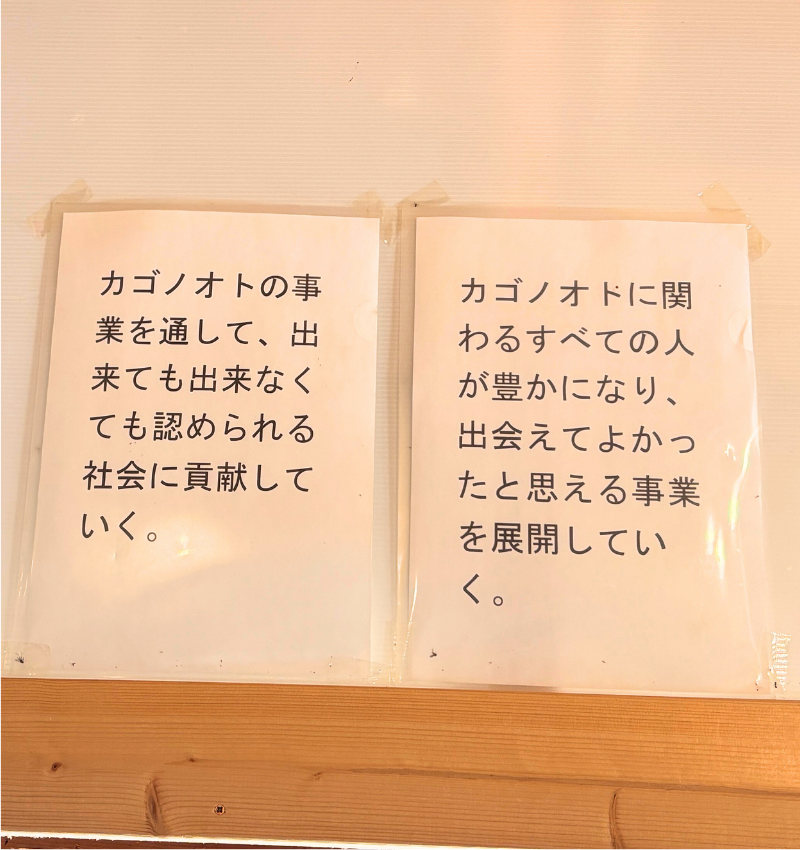 カゴノオトの事
業を通して、出
来ても出来なく
ても認められる
社会に貢献して
いく。
カゴノオトに関
わるすべての人
が豊かになり、
出会えてよかっ
たと思える事業
を展開してい
く。